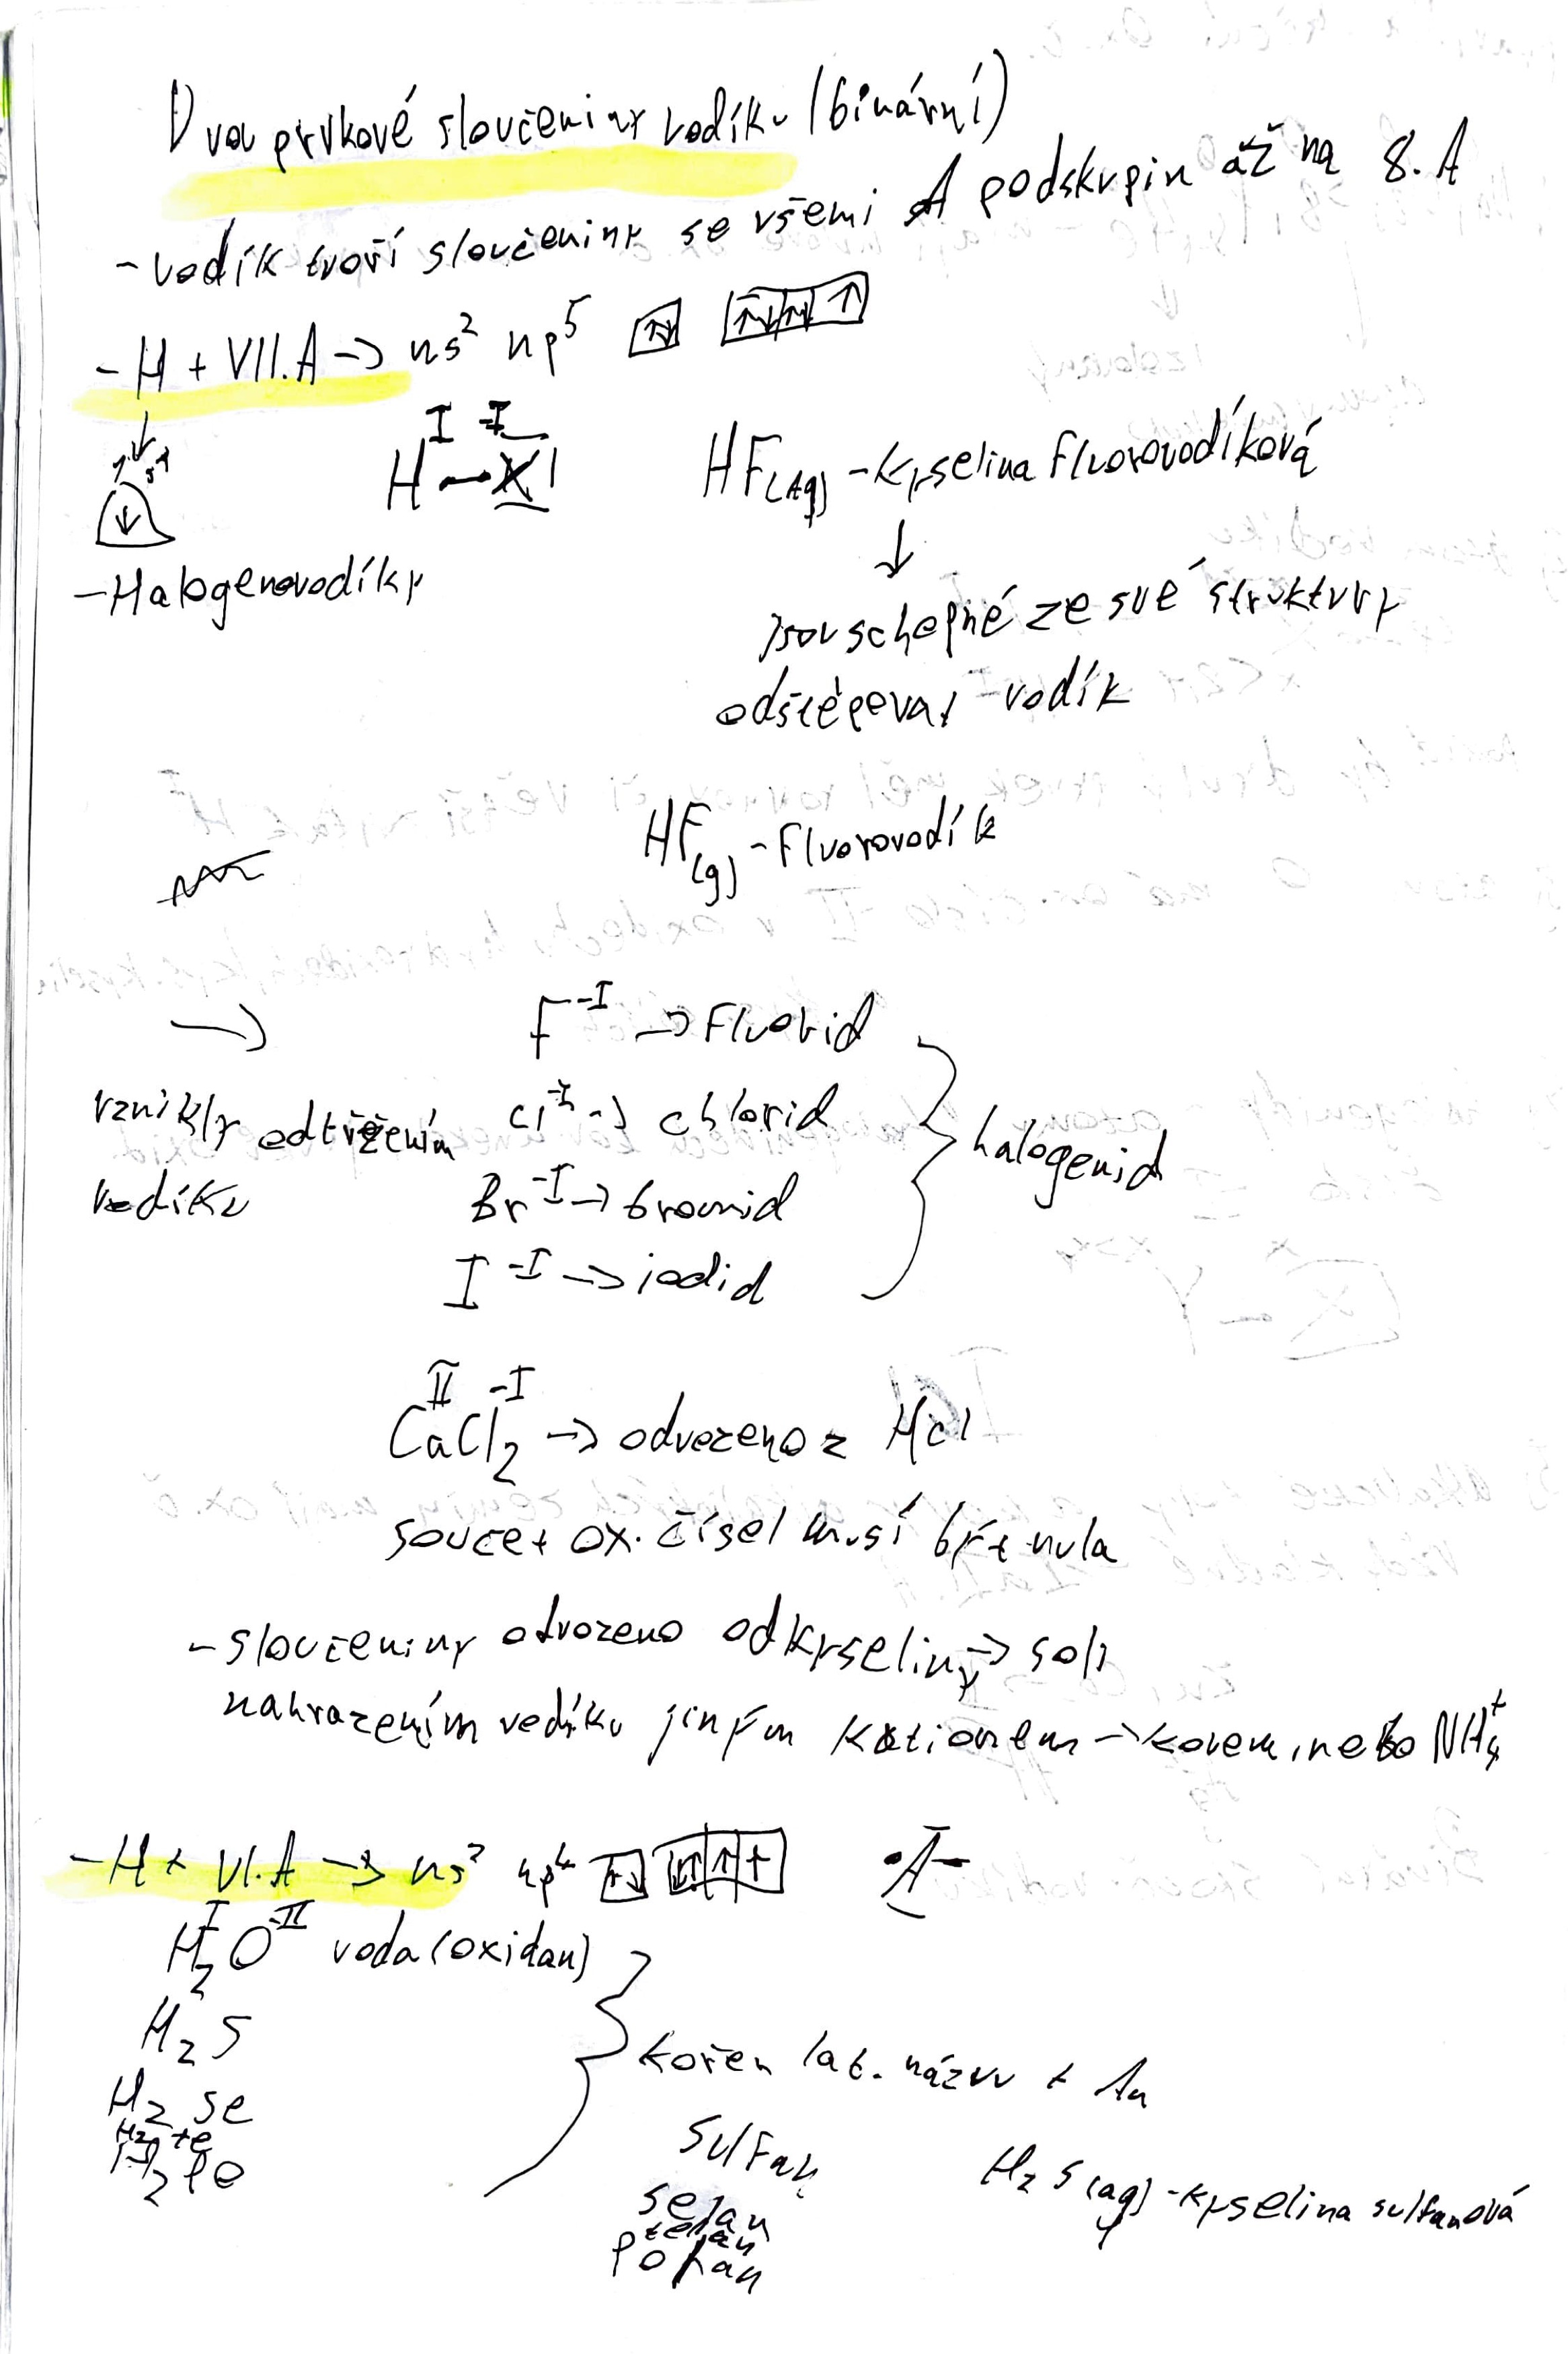 Dvou prvkové sloučeniny vodíku (binární)
- vodík tvoří sloučeniny se všemi A podskupin až na 8. A
- H + VII.A -> ns² np⁵
I -I
H - X
HF(aq) - kyselina fluorovodíková
- Halogenovodíky
jsou schopné ze své struktury
odštěpovat vodík
HF(g) - Fluorovodík
F⁻ᴵ -> Fluorid
vznikly odtržením
vodíku
Cl⁻ᴵ -> chlorid
Br⁻ᴵ -> bromid
I⁻ᴵ -> iodid
halogenid
II -I
CaCl₂ -> odvozeno z HCl
součet ox. čísel musí být nula
- sloučeniny odvozeno od kyseliny -> soli
nahrazením vodíku jiným kationem -> kovem, nebo NH₄⁺
- H + VI.A -> ns² np⁴
A
I -II
H₂O voda (oxidan)
H₂S
H₂Se
H₂Te
H₂Po
kořen lat. názvu + An
sulfan
selan
telan
polan
H₂S(aq) - kyselina sulfanová